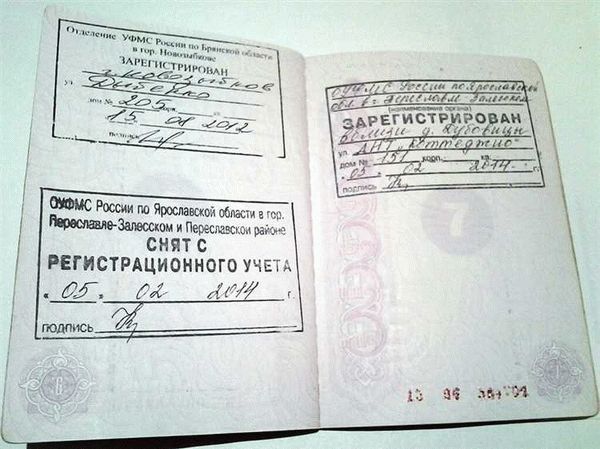 Отделение УФМС России по Брянской области
в гор. Новозыбкове
ЗАРЕГИСТРИРОВАН
г. Новозыбков
ул.
дом № 205 корп.
15. 08 2012
подпись
ОУФМС России по Ярославской области в гор.
Переславле-Залесском и Переславском районе
СНЯТ С
РЕГИСТРАЦИОННОГО УЧЕТА
« 05 » 02 2014 г.
ПОДПИСЬ
6
ОУФМС России по Ярославской
обл. в г. Переславле-Залесском
(наименование органа)
ЗАРЕГИСТРИРОВАН
д. Дубовицы
ул. ДНТ "Коттеджно"
дом № 151 корп. кв.
« 05 » 02 2014 г.
ПОДПИСЬ
7
7